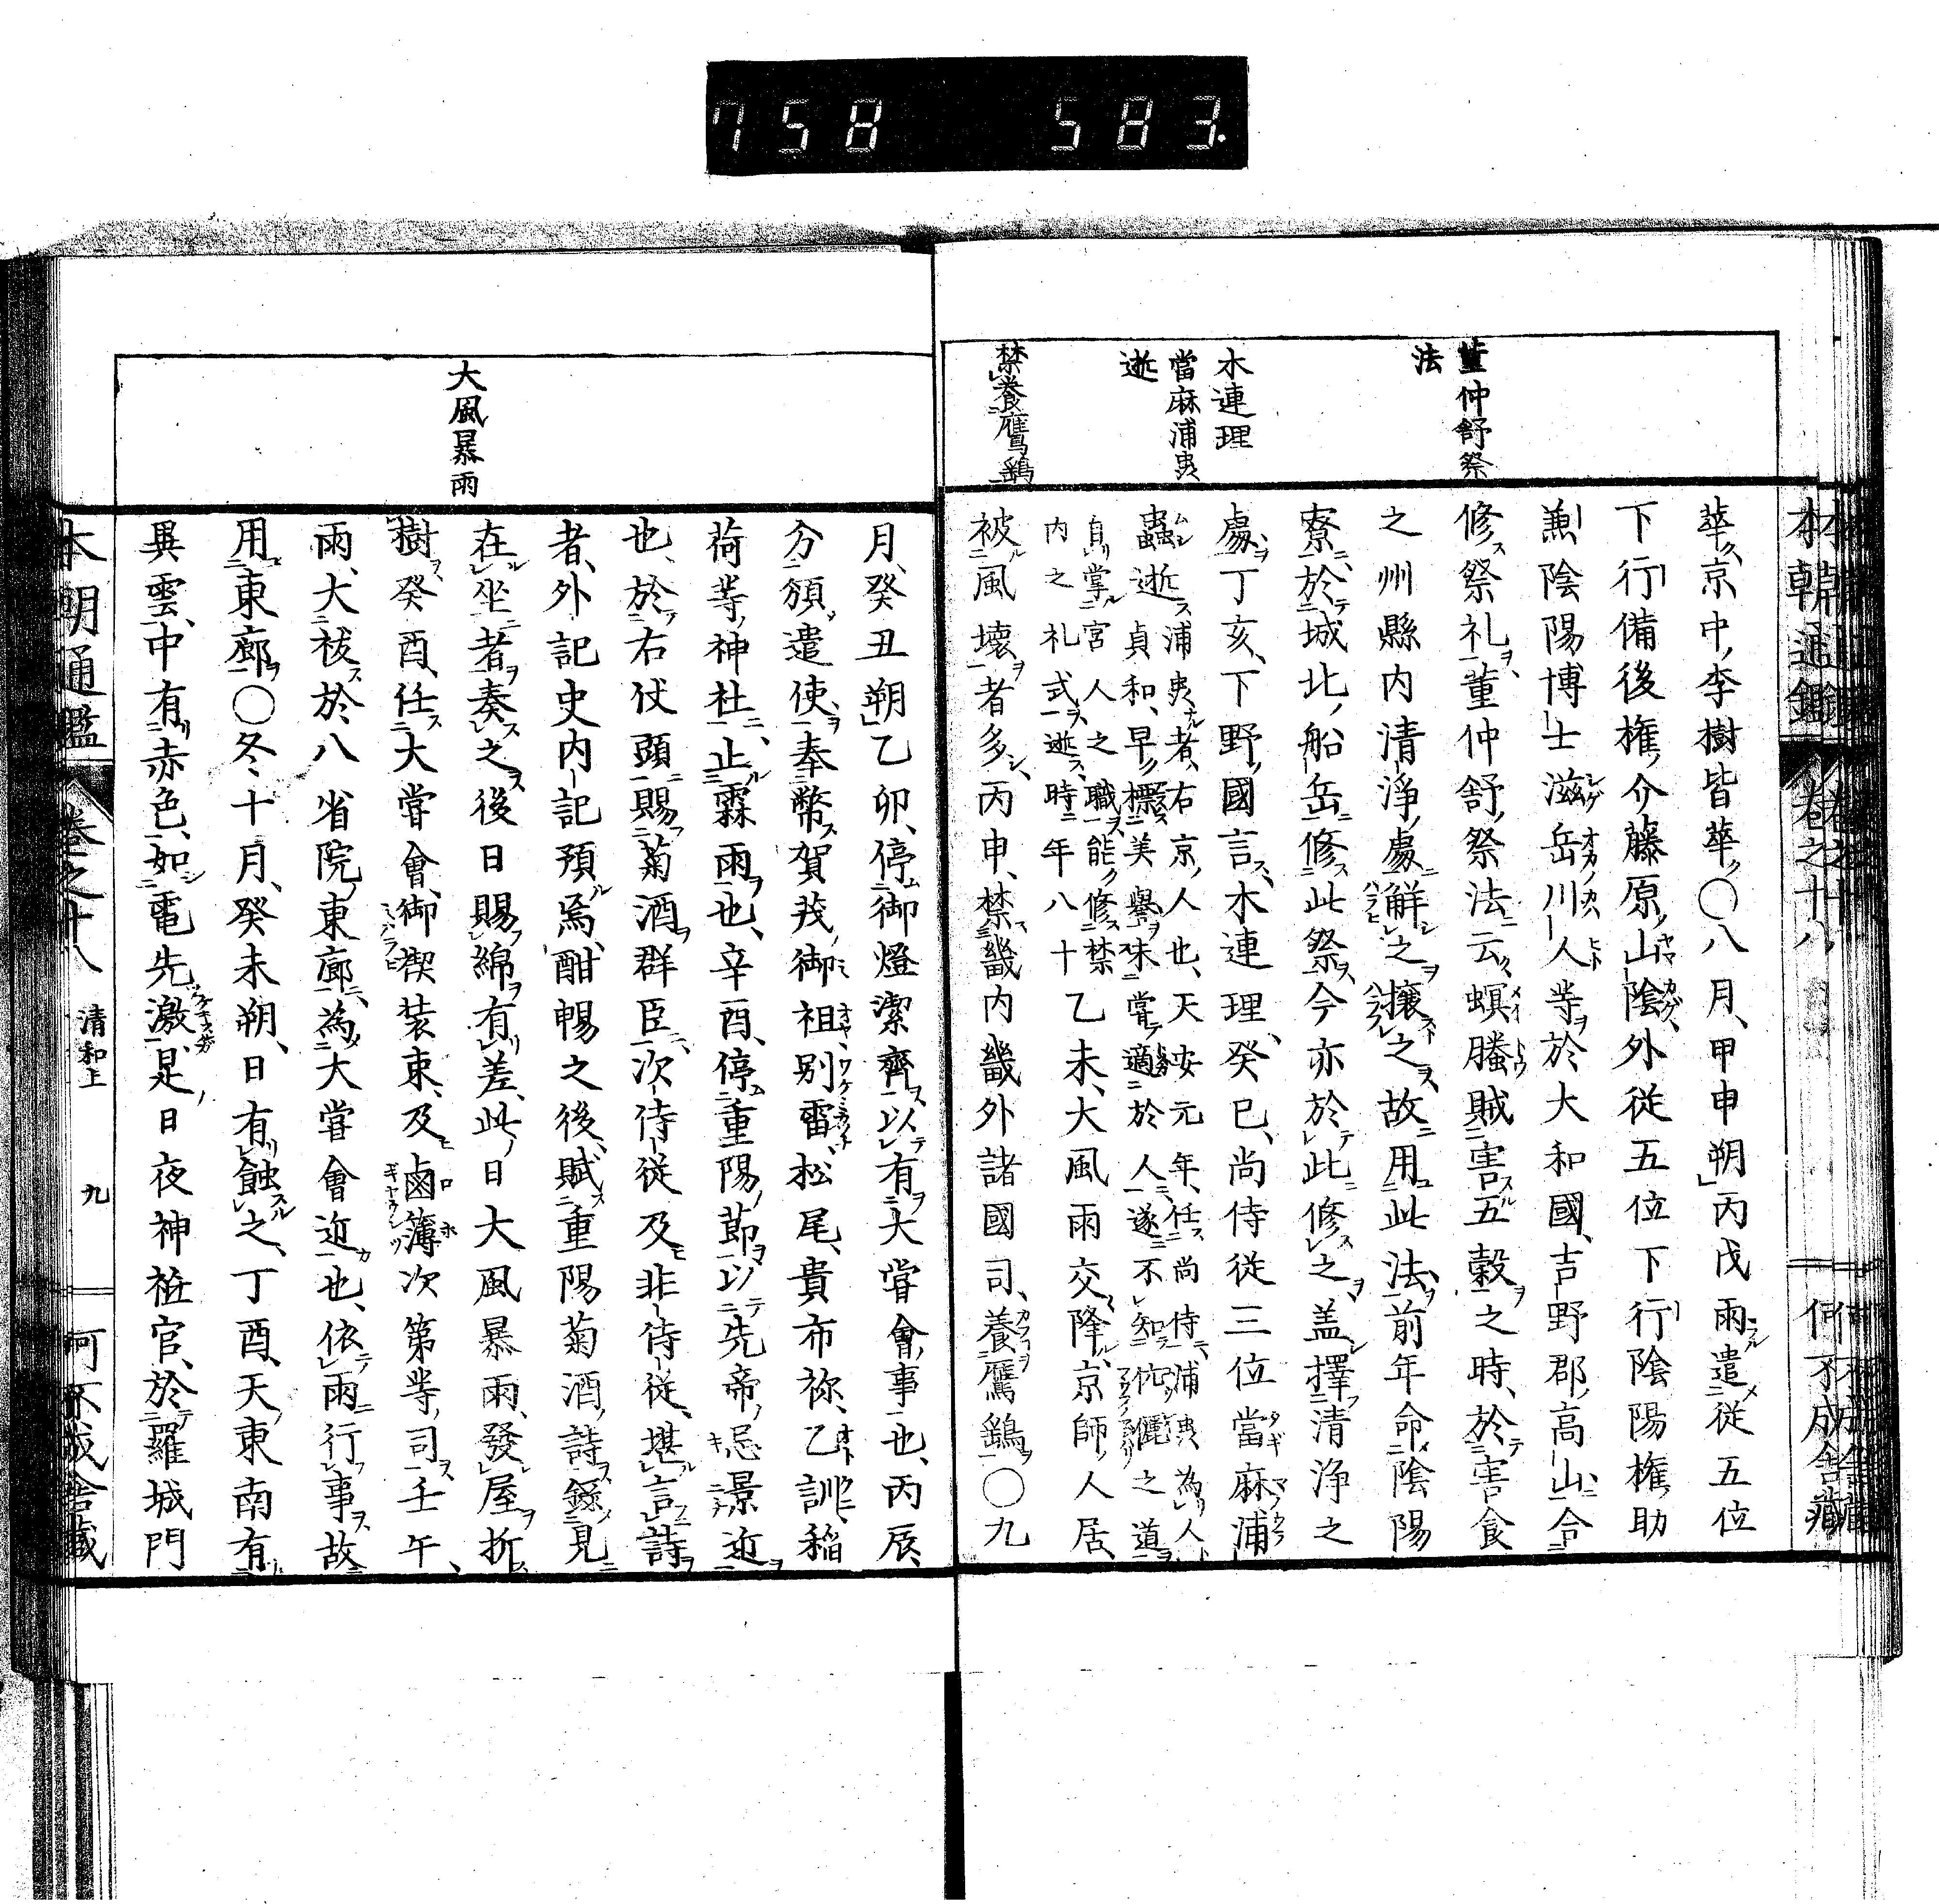 758 583.
本朝通鑑 卷之十八 何不成舍藏
董仲舒祭
法
木連理
當麻浦虫
逝
禁養鷹鷂
華京中李樹皆華〇八月甲申朔丙戌雨遣從五位
下行備後權介藤原山陰外從五位下行陰陽權助
兼陰陽博士滋岳川人等於大和國吉野郡高山合
修祭礼董仲舒祭法云螟螣賊害五穀之時於害食
之州縣内清淨處解之攘之故用此法前年命陰陽
寮於城北船岳修此祭今亦於此修之盖擇清浄之
處丁亥下野國言木連理癸巳尚侍從三位當麻浦
蟲逝浦虫者右京人也天安元年任尚侍浦虫為人
貞和早標美譽未嘗適於人遂不知伉儷之道
自掌宮人之職能修禁
内之礼式逝時年八十乙未大風雨交降京師人居
被風壊者多丙申禁畿内畿外諸國司養鷹鷂〇九
大風暴雨
月癸丑朔乙卯停御燈潔齊以有大嘗會事也丙辰
分頒遣使奉幣賀茂御祖別雷松尾貴布祢乙訓稲
荷等神社止霖雨也辛酉停重陽節以先帝忌景近
也於右仗頭賜菊酒群臣次侍從及非侍從堪言詩
者外記史内記預焉酣暢之後賦重陽菊酒詩錄見
在坐者奏之後日賜綿有差此日大風暴雨發屋折
樹癸酉任大嘗會御禊装束及鹵簿次第等司壬午
雨大祓於八省院東廊為大嘗會近也依雨行事故
用東廊〇冬十月癸未朔日有蝕之丁酉天東南有
異雲中有赤色如電先激是日夜神祇官於羅城門
本朝通鑑 卷之十八 清和上 九 何不成舍藏